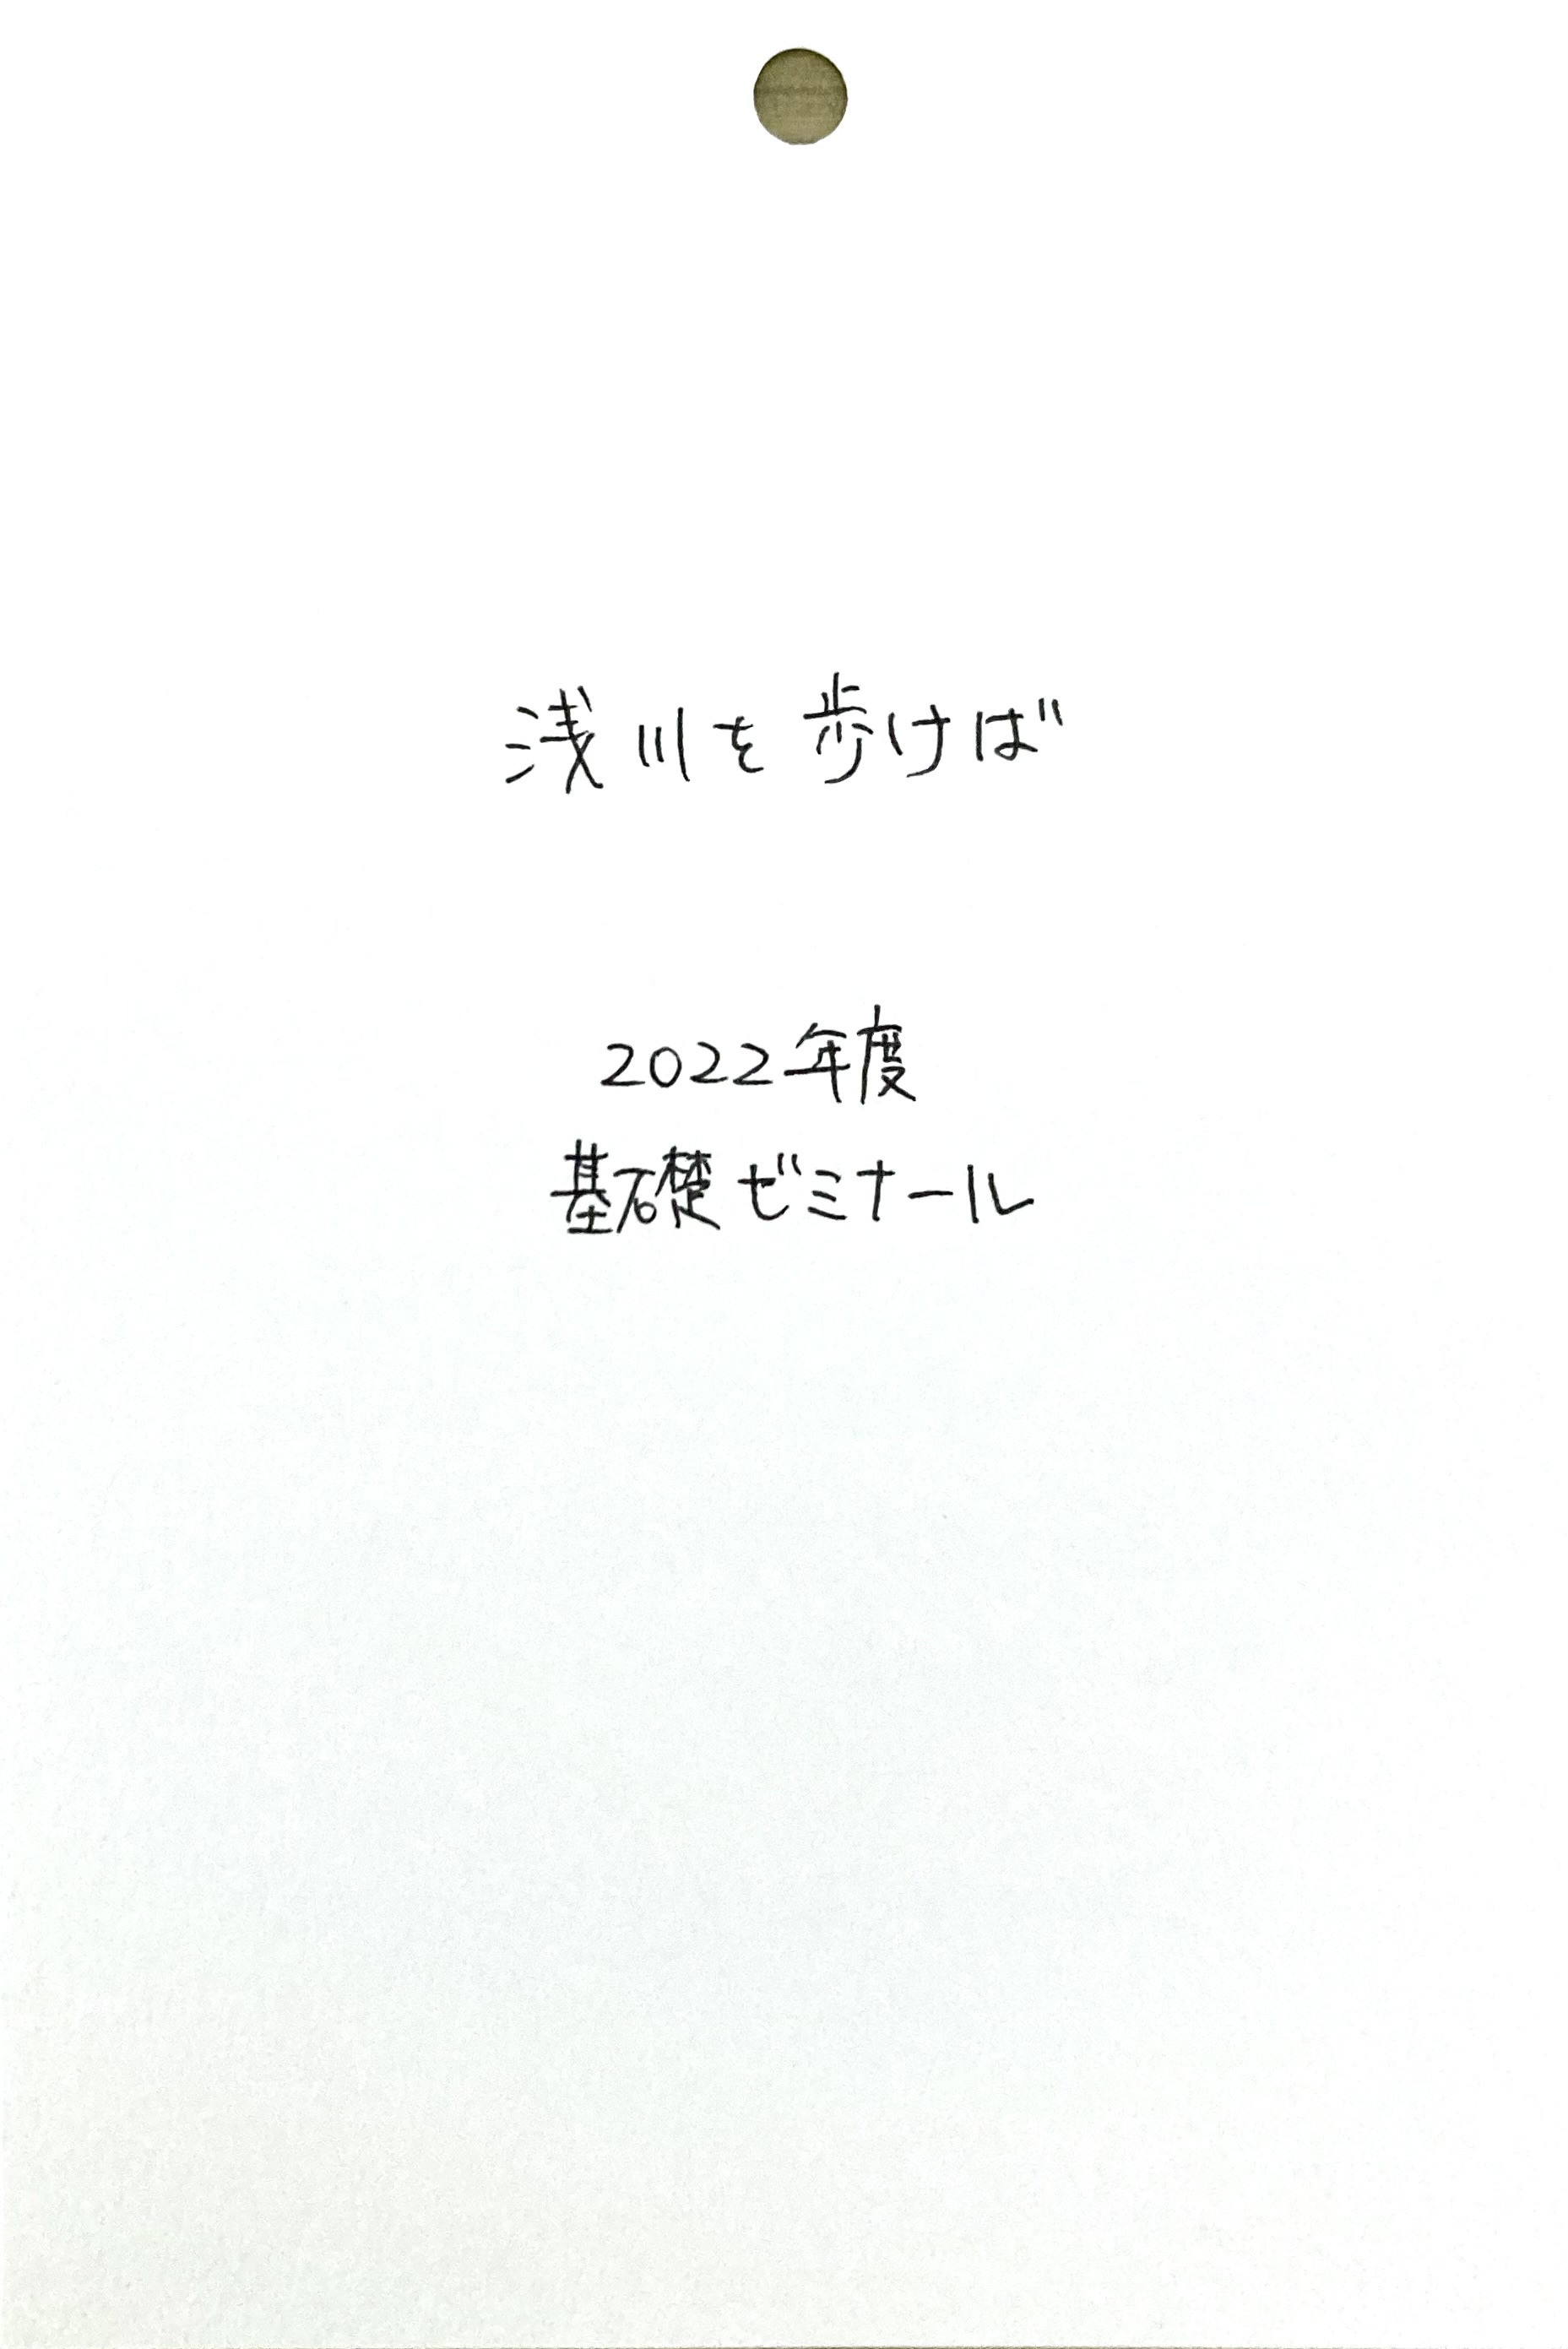 浅川を歩けば
2022年度
基礎ゼミナール